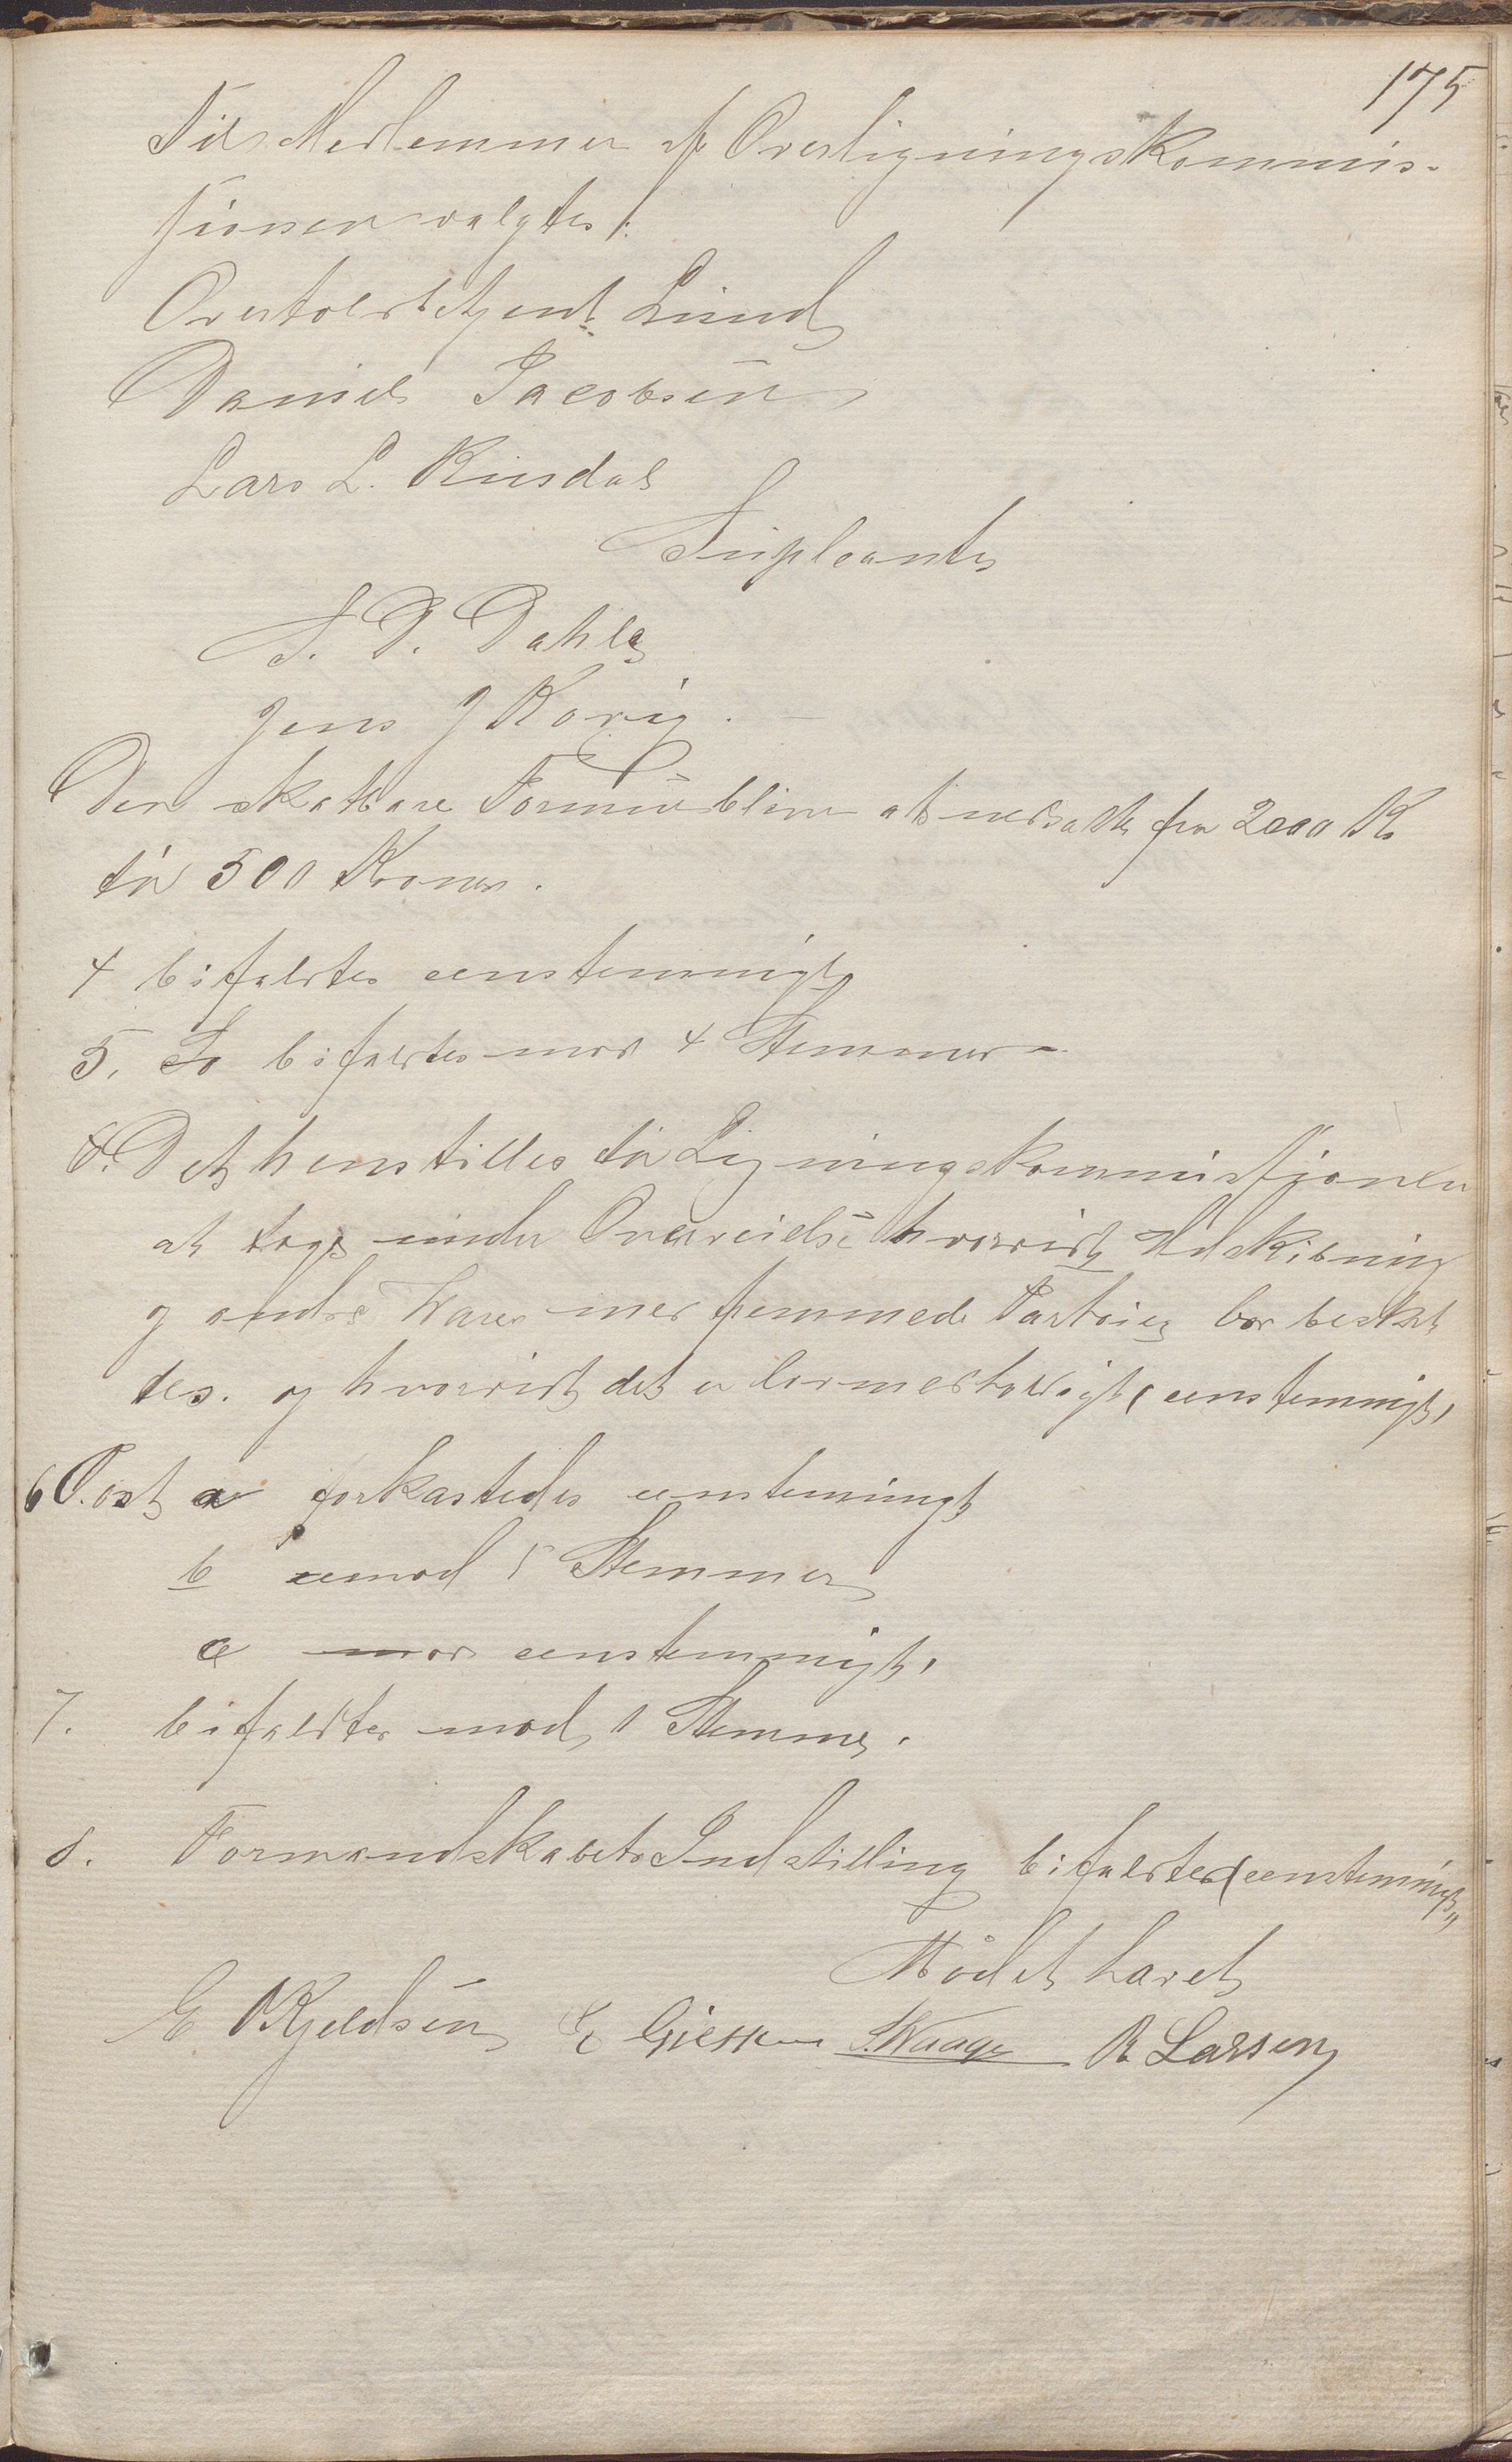 175
Til Medlemmer af Overligningskommis-
sionen valgtes:
Overtoldbetjent Lund
Daniel Jacobsen
Lars L. Rusdal
Supleanter
S. D. Dahle
Jens J Rovig.
Den skatbare Formue bliver at nedsatte fra 2000 Kr
til 500 Kroner.
4 bifaldtes eenstemmigt
5. bifaldtes mod 4 Stemmer
8. Det henstilles til Ligningskommissjonen
at tage under Overveielse hvorvidt Udskibning
og andre Varer med fremmede Fartøier bør beskat
tes. og hvorvidt det er lovmedholdigt, eenstemmigt,
6 Post a forkastedes eenstemmigt
b imod 5 Stemmer
c mod eenstemmigt,
7. bifaldtes mod 1 Stemme.
8. Formandskabets Indstilling bifaldtes (eenstemmigt"
Mødet hævet
E Kjeldsen E Giesken S. Waage R Larsen